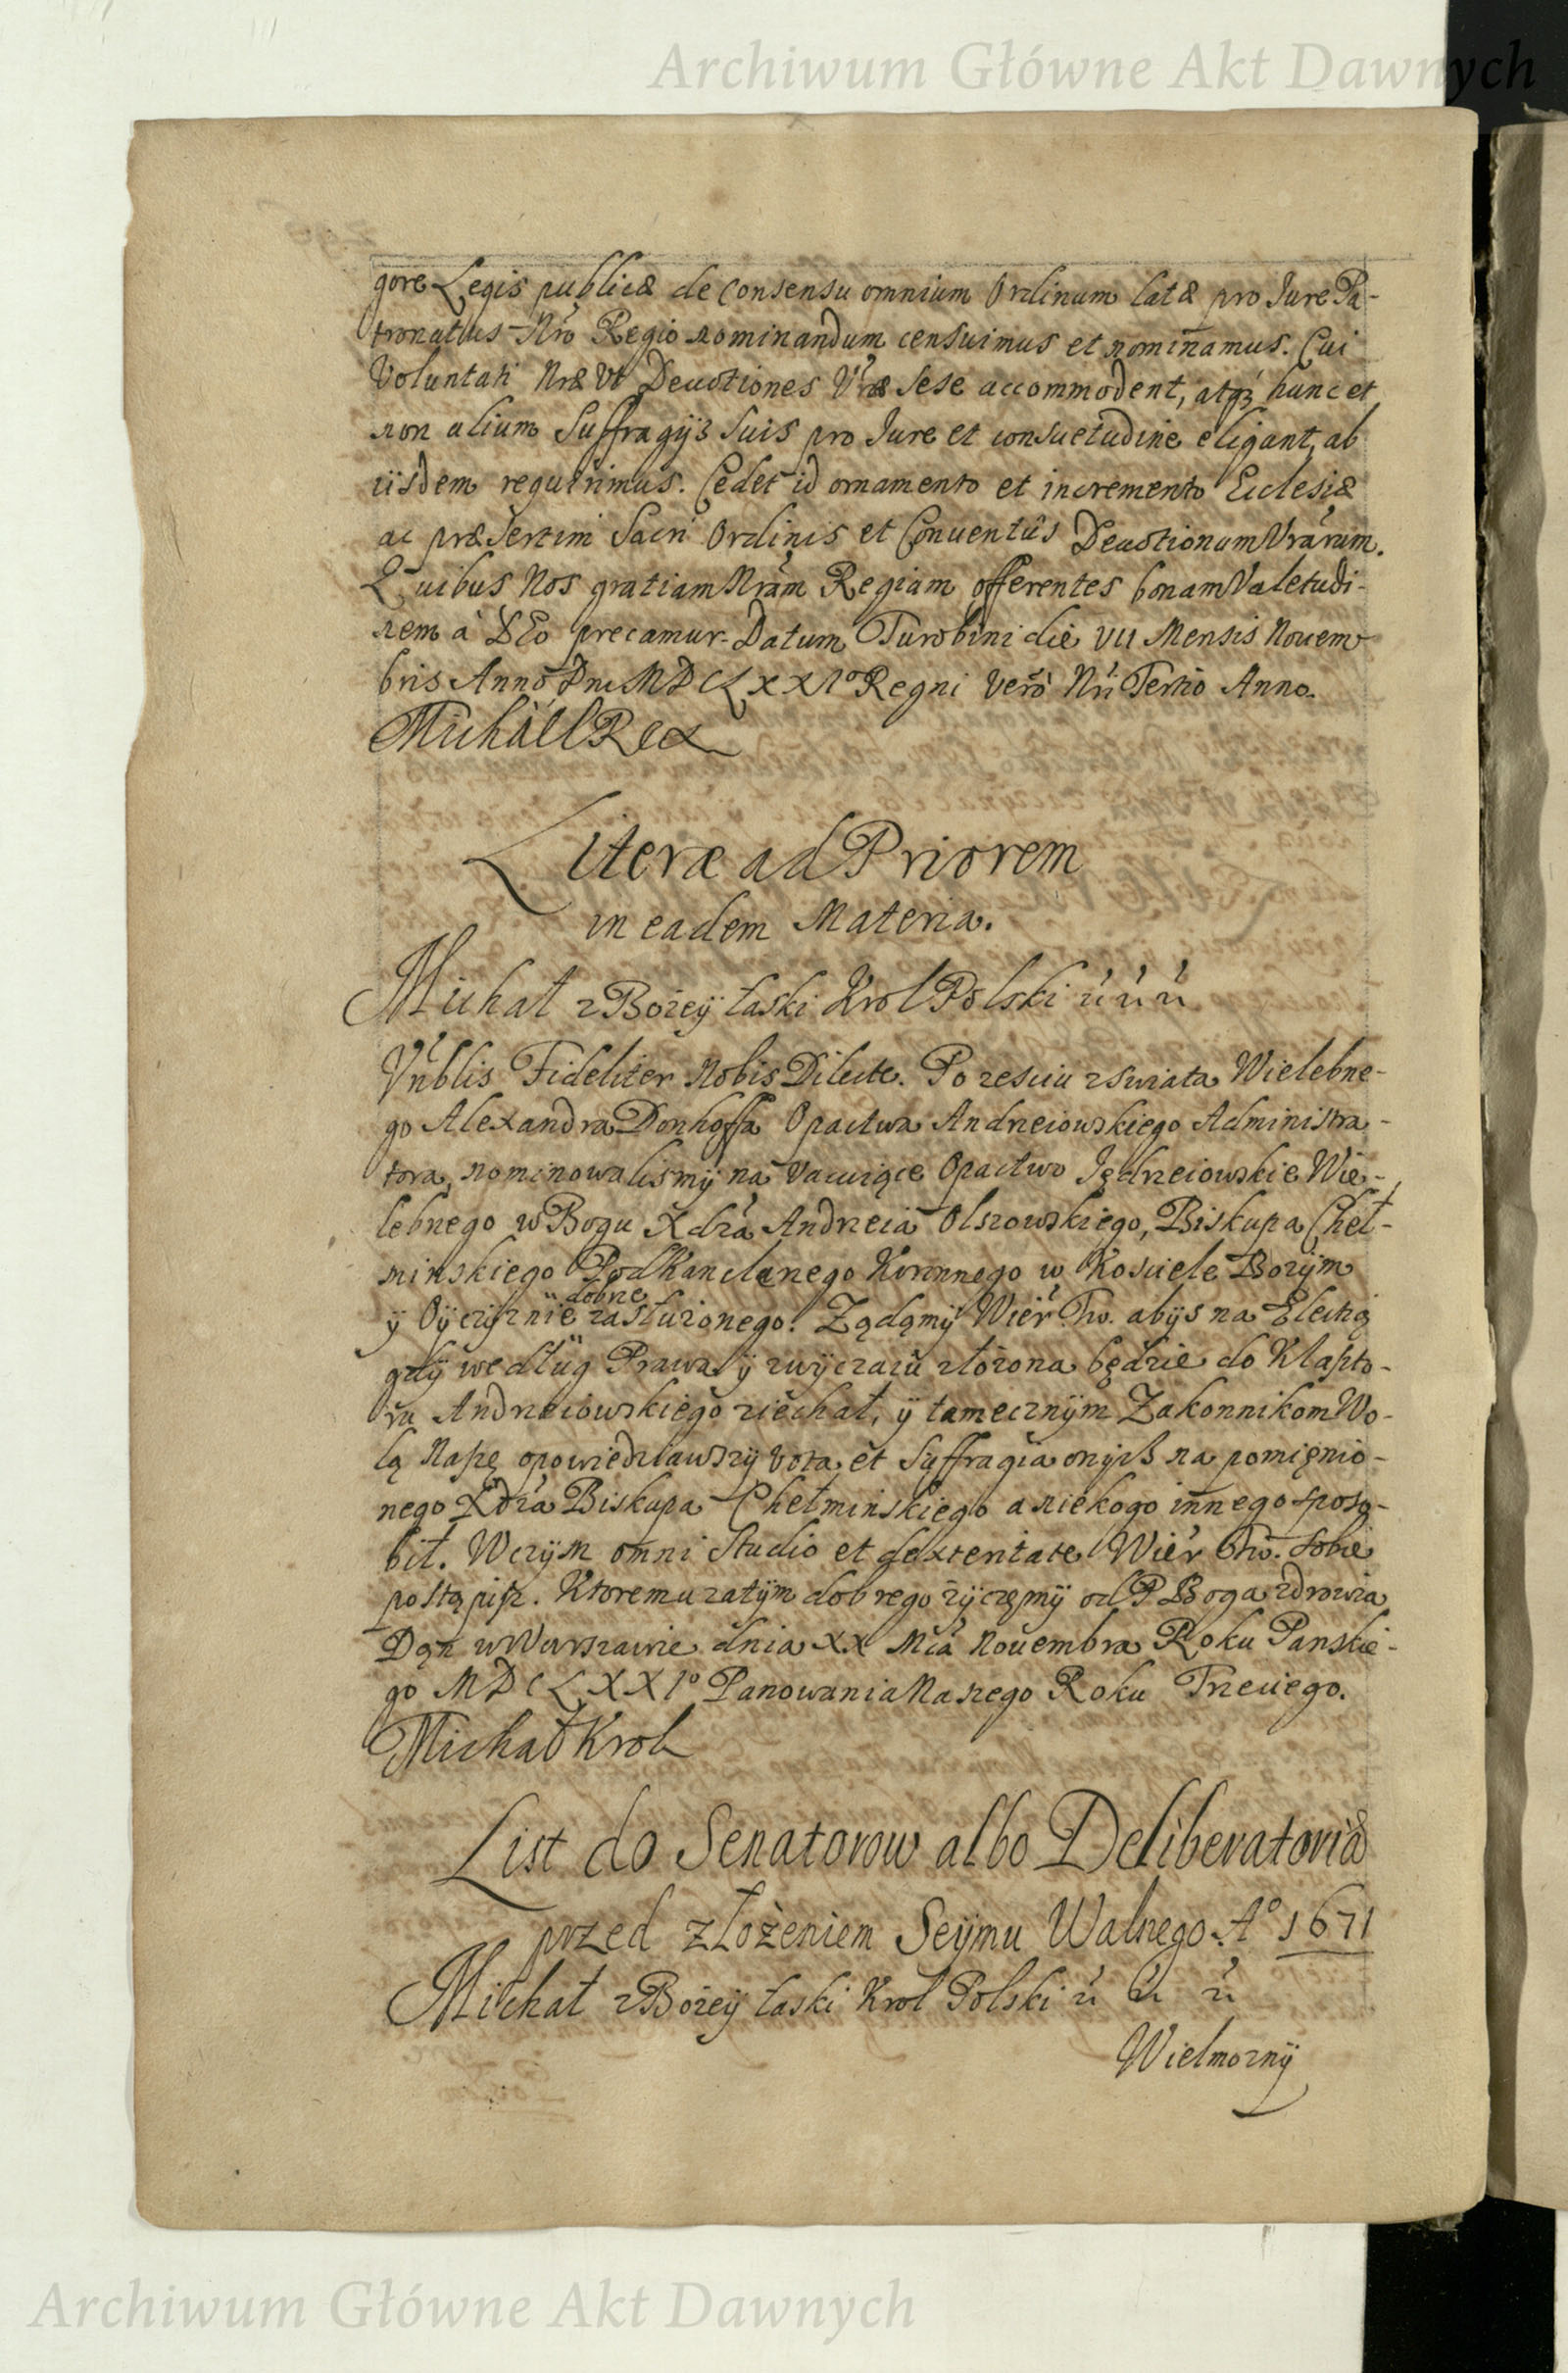 Archiwum Główne Akt Dawnych
gore Legis publicæ de consensu omnium Ordinum latæ pro Jure Pa-
tronatus Nro Regio nominandum censuimus et nominamus. Cui
Voluntati Nræ Vt Deuotiones Vræ sese accommodent, atq3 hunc et
non alium Suffragÿs suis pro Jure et consuetudine eligant, ab
iisdem requirimus. Cedet id ornamento et incremento Ecclesiæ
ac præsertim Sacri Ordinis et Conuentûs Deuotionum Vrarum.
Quibus Nos gratiam Nram Regiam offerentes bonam Valetudi-
nem à DEo precamur. Datum Turobini die VII Mensis Nouem-
bris Anno Dni MDCLXXI° Regni Vero Nri Tertio Anno.
Michaël Rex
Literæ ad Priorem
in eadem Materia.
Michał z Bożeÿ łaski Krol Polski
Vnblis Fideliter Nobis Dilecte. Po zesciu z swiata Wielebne-
go Alexandra Donhoffa Opactwa Andrzeiowskiego Administra-
tora, nominowalismÿ na vacuiące Opactwo Jędrzeiowskie Wie-
lebnego w Bogu Xdza Andrzeia Olszowskiego, Biskupa Cheł-
minskiego Podkanclerzego Koronnego w Kosciele Bożÿm
dobrze
ÿ Oÿczÿznie zasłużonego. Ządamÿ Wier Tw. abÿs na Elecÿą
gdÿ według Prawa ÿ zwÿczaiu złożona będzie do Klaszto-
ru Andrzeiowskiego ziechał, ÿ tamecznÿm Zakonnikom Wo-
lą Naszę opowiedziawszÿ vota et Suffragia onÿch na pomienio-
nego Xdza Biskupa Chełminskiego a niekogo innego sposo-
bił. Wczÿm omni Studio et dexteritate Wier Tw. sobie
postąpisz. Ktoremu zatÿm dobrego zÿczÿmÿ od P Boga zdrowia
Dan w Warszawie dnia XX Mca Nouembra Roku Panskie-
go MDCLXXI° Panowania Naszego Roku Trzeciego.
Michał Krol
List do Senatorow albo Deliberatoriæ
przed złożeniem Seÿmu Walnego A° 1671
Michał z Bożeÿ łaski Krol Polski
Wielmoznÿ
Archiwum Główne Akt Dawnych